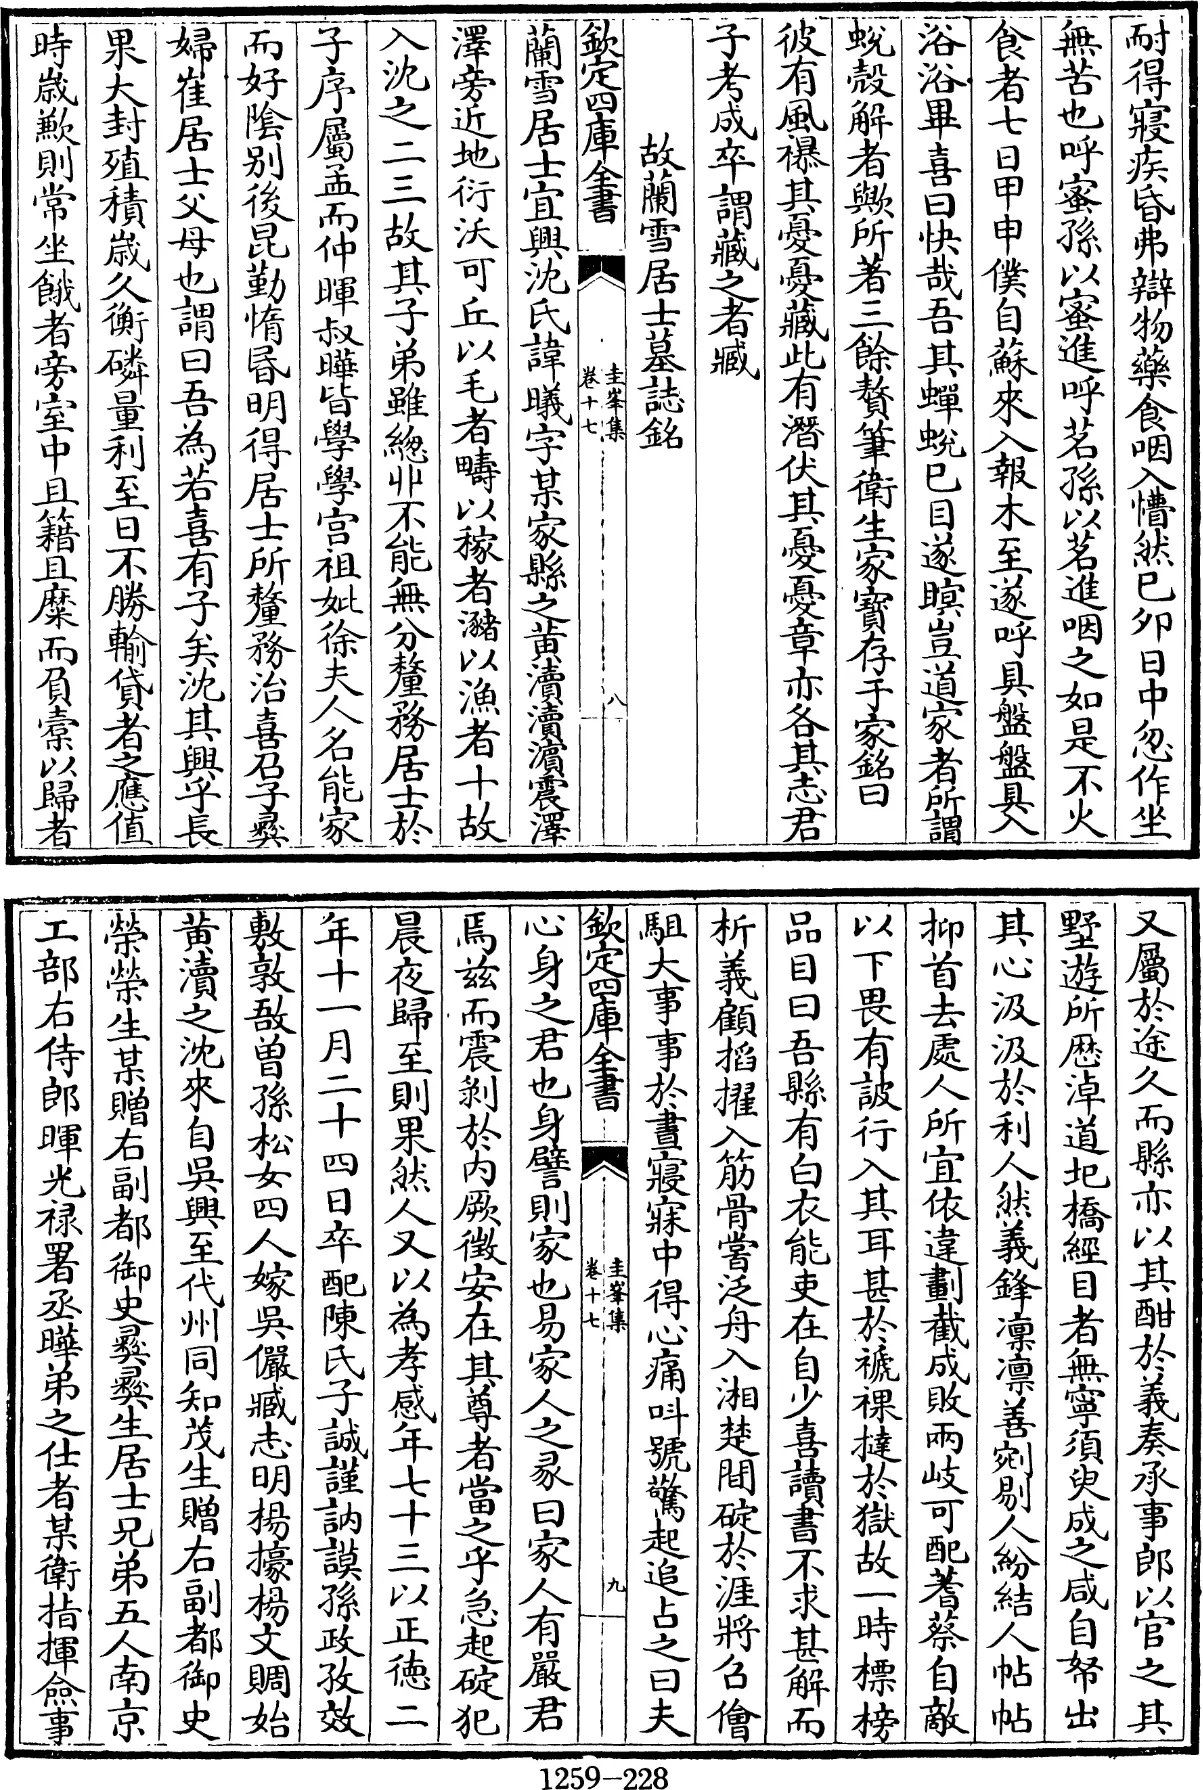 耐得寢疾昏弗辯物藥食咽入懵然已卯日中忽作坐
無苦也呼蜜孫以蜜進呼茗孫以茗進咽之如是不火
食者七日甲申僕自蘇來入報木至遂呼具盤盤具入
浴浴畢喜曰快哉吾其蟬蛻已目遂瞑豈道家者所謂
蛻殼解者歟所著三餘贅筆衛生家寳存于家銘曰
彼有風襮其憂憂藏此有潛伏其憂憂章亦各其志君
子考成卒謂藏之者臧
故蘭雪居士墓誌銘
欽定四庫全書
圭峯集
卷十七
八
蘭雪居士宜興沈氏諱曦字某家縣之黄瀆瀆濵震澤
澤旁近地衍沃可丘以毛者疇以稼者瀦以漁者十故
入沈之二三故其子弟雖緫丱不能無分釐務居士於
子序屬孟而仲暉叔曄皆學學宫祖妣徐夫人名能家
而好陰别後昆勤惰昬明得居士所釐務治喜召子彛
婦崔居士父母也謂曰吾為若喜有子矣沈其興乎長
果大封殖積歲久衡磷量利至日不勝輸貸者之應值
時歲歉則常坐餓者旁室中且籍且糜而負橐以歸者
又屬於途久而縣亦以其酣於義奏承事郎以官之其
墅遊所厯淖道圯橋經目者無寧須臾成之咸自帑出
其心汲汲於利人然義鋒凛凛善剜剔人紛結人帖帖
抑首去處人所宜依違劃截成敗兩岐可配蓍蔡自敵
以下畏有詖行入其耳甚於褫裸撻於獄故一時標榜
品目曰吾縣有白衣能吏在自少喜讀書不求甚解而
析義顧搯擢入筋骨嘗泛舟入湘楚間碇於涯將召儈
駔大事事於晝寢寐中得心痛呌號驚起追占之曰夫
欽定四庫全書
圭峯集
卷十七
九
心身之君也身譬則家也易家人之彖曰家人有嚴君
焉兹而震剝於内厥徴安在其尊者當之乎急起碇犯
晨夜歸至則果然人又以為孝感年七十三以正徳二
年十一月二十四日卒配陳氏子誠謹訥謨孫政孜效
敷敦敔曽孫松女四人嫁吳儼臧志明楊擴楊文賙始
黄瀆之沈來自吳興至代州同知茂生贈右副都御史
榮榮生某贈右副都御史彛彛生居士兄弟五人南京
工部右侍郎暉光禄署丞曄弟之仕者某衛指揮僉事
1259-228